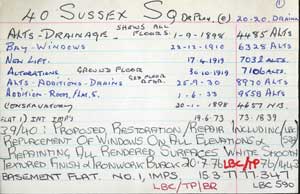 40 SUSSEX SQ DR PLAN (e) 20-30. DRAINAGE ①
SHOWS ALL FLOORS.
ALTS - DRAINAGE - 1-9-1898 4485 ALTS
BAY-WINDOWS 22-12-1910 6325 ALTS
NEW LIFT. 17-4-1919 7032 ALTS.
ALTERATIONS GROUND FLOOR 30.10.1919 7106 ALTS.
ALTS-ADDITIONS-DRAINS 25-9-30 8970 ALTS
ADDITION-ROOM 1.6.33 9558 ALTS
CONSERVATORY 20-1-1898 4657 N.B.
FLAT 1) INT IMPS 19.6.73 73.1839
39/40: PROPOSED RESTORATION/REPAIR INCLUDING
REPLACEMENT OF WINDOWS ON ALL ELEVATIONS &
REPAINTING ALL RENDERED SURFACES WHITE SMOOTH
TEXTURED FINISH & IRONWORK BLACK 20.7.76 LBC/TP
BASEMENT FLAT. NO 1, IMPS. 15.3.77 77.347
LBC/TP/BR LBC 590